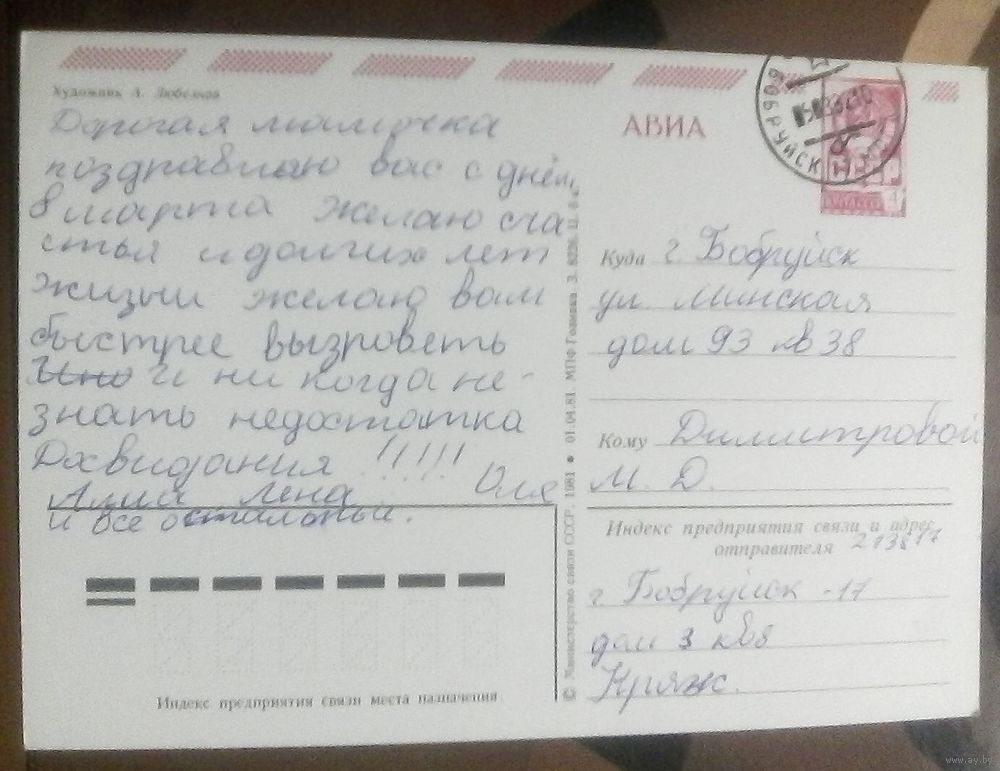 Художник А. Любезнов
Дорогая мамочка
поздравляю вас с днём
8 марта желаю сча
стья и долгих лет
жизни желаю вам
быстрее вызроветь
и ни когда не-
знать недостатка
Досвидания !!!!!
Алик Лена Оля
и все остальный.
Индекс предприятия связи места назначения
© Министерство связи СССР, 1981 ● 01.04.81. МПФ Гознака З. 8226. Ц. 6 к.
АВИА
БОБРУЙСК
Куда г. Бобруйск
ул. Минская
дом 93 кв 38
Кому Димитровой
М. Д.
Индекс предприятия связи и адрес
отправителя 213817
г. Бобруйск -17
дом 3 кв 8
Кряжс.
www.ay.by